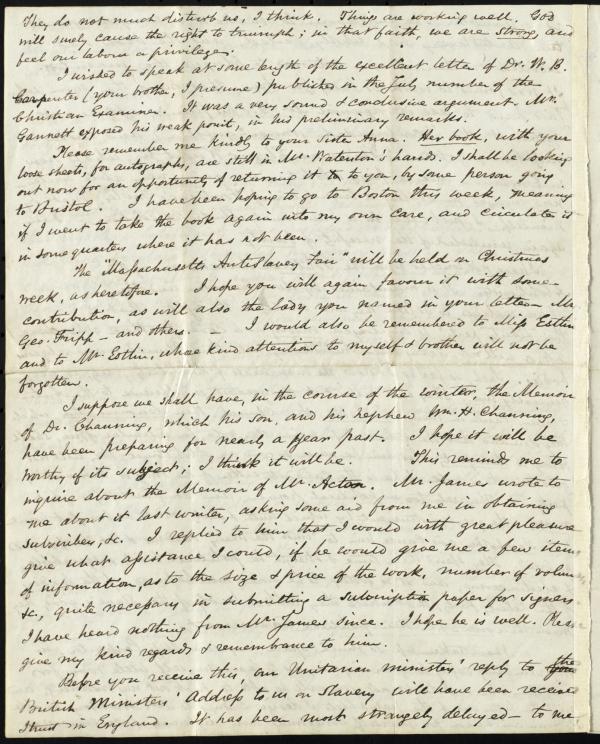 They do not much disturb us, I think. Things are working well. God
will surely cause the right to triumph; in that faith, we are strong, and
feel our labour a privilege.
I wished to speak at some length of the excellent letter of Dr. W. B.
Carpenter (your brother, I presume) published in the July number of the
Christian Examiner. It was a very sound & conclusive argument. Mr.
Gannett exposed his weak point, in his preliminary remarks.
Please remember me kindly to your Sister Anna. Her book, with your
loose sheets, for autographs, are still in Mr. Waterston's hands. I shall be looking
out now for an opportunity of returning it to you, by some person going
to Bristol. I have been hoping to go to Boston this week, meaning
if I went to take the book again into my own care, and circulate it
in some quarters where it has not been.
The "Massachusetts AntiSlavery Fair" will be held on Christmas
week, as heretofore. I hope you will again favour it with some
contribution, as will also the Lady you named in your letter – Mr.
Geo. Tripp – and others. – I would also be remembered to Miss Estlin
and to Mr. Estlin, whose kind attentions to myself & brother will not be
forgotten.
I suppose we shall have, in the course of the winter, the Memoir
of Dr. Channing, which his son, and his nephew Wm. H. Channing,
have been preparing for nearly a year past. I hope it will be
worthy of its subject; I think it will be. This reminds me to
inquire about the Memoir of Mr. Acton. Mr. James wrote to
me about it last winter, asking some aid from me in obtaining
subscribers, &c. I replied to him that I would with great pleasure
give what assistance I could, if he would give me a few items
of information, as to the size & price of the work, number of volumes
&c., quite necessary in submitting a subscription paper for signers.
I have heard nothing from Mr. James since. I hope he is well. Please
give my kind regards & remembrance to him.
Before you receive this, our Unitarian ministers' reply to the
British Ministers' Address to us on Slavery will have been received
I trust in England. It has been most strangely delayed – to me